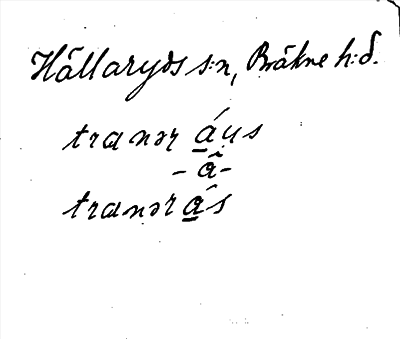 Hällaryds s:n, Bräkne h:d.
tranər á̱u̯s
-ã̱-
tranərá̱s